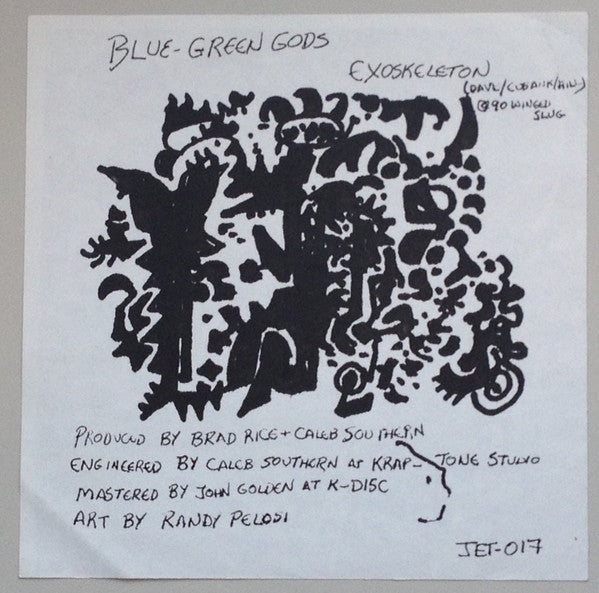 BLUE-GREEN GODS
EXOSKELETON
(DAVE/EUBANK/HIN.)
@90 WINGED
SLUG
PRODUCED BY BRAD RICE + CALEB SOUTHERN
ENGINEERED BY CALEB SOUTHERN AT KRAP-TONE STUDIO
MASTERED BY JOHN GOLDEN AT K-DISC
ART BY RANDY PELOSI
JET-017